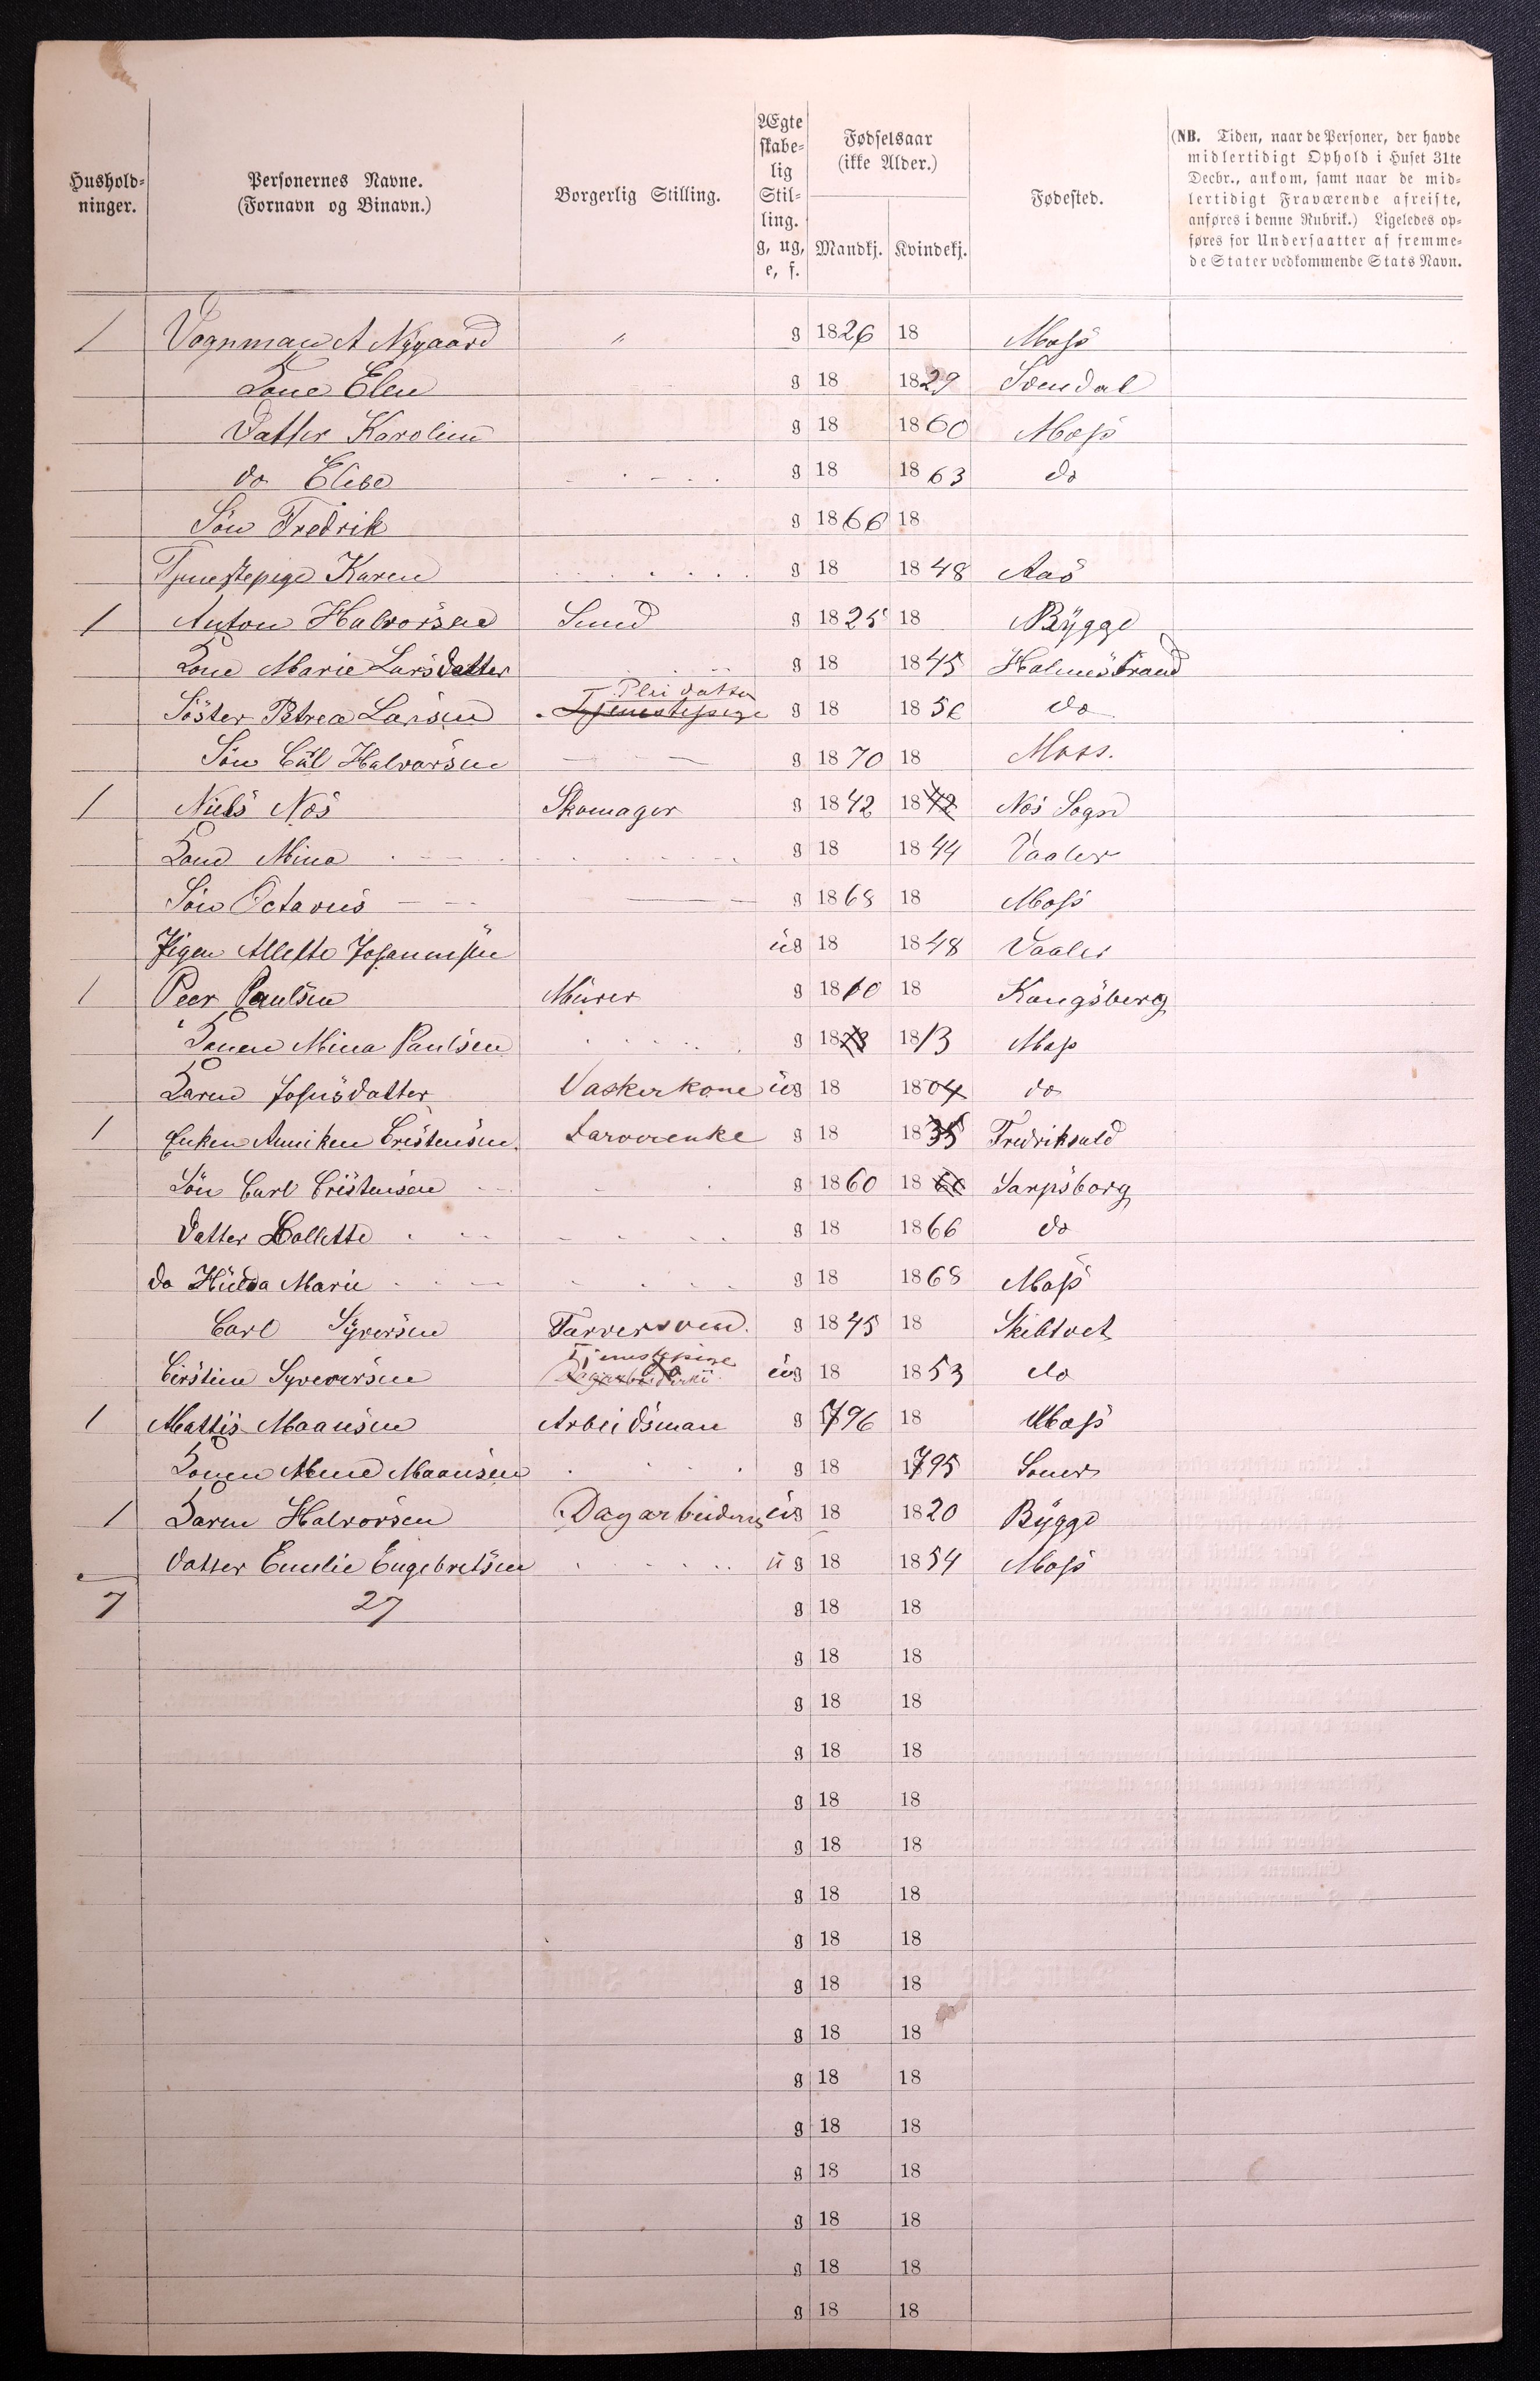 Hushold-
ninger.
Personernes Navne.
(Fornavn og Binavn.)
Borgerlig Stilling.
Ægte
skabe-
lig
Stil-
ling.
g, ug,
e, f.
Fødselsaar
(ikke Alder.)
Mandkj. Kvindekj.
Fødested.
(NB. Tiden, naar de Personer, der havde
midlertidigt Ophold i Huset 31te
Decbr., ankom, samt naar de mid-
lertidigt Fraværende afreiste,
anføres i denne Rubrik.) Ligeledes op-
føres for Undersaatter af fremme-
de Stater vedkommende Stats Navn.
1 Vognman A Nygaard " g 1826 18 Moss
Kone Elen g 18 1829
Datter Karolin g 18 1860 Moss
do Elise g 18 1863 do
Søn Fredrik g 1866 18
Tjenestepige Karen g 18 1848 Aas
1 Anton Halvorsen Smed g 1825 18 Rygge
Kone Marie Larsdatter g 18 1845 Holmestrand
Plei datter
Söster Petrea Larsen Tjenestepige g 18 185 do
Sön Carl Halvorsen g 1870 18 Moss.
1 Niels Nes Skomager g 1842 1842 Nes Sogn
Kone Mina g 18 1844 Vaaler
Søn Octavus g 1868 18 Moss
Pigen Allette Johannesen ug 18 1848 Vaaler
1 Peer Paulsen Murer g 1810 18 Kongsberg
Konen Mina Paulsen g 1813 1813 Moss
Karen Johnsdatter Vaskerkone ug 18 1804 do
1 Enken Anniken Cristensen Garverenke g 18 1835 Fredrikshald
Sön Carl Cristensen g 1860 1860 Sarpsborg
Datter Collette g 18 1866 do
do Hulda Marie g 18 1868 Moss
Carl Syversen Garversvend. g 1845 18 Skibtvet
Tjenestepige
Cirstine Syverersen Dagarbeiderske ug 18 1853 do
1 Mattis Maansen Arbeidsman g 1796 18 Moss
Konen Anne Maansen g 18 1795 Soner
1 Karen Halvorsen Dagarbeiderske ug 18 1820 Rygge
Datter Emelie Engebretsen ug 18 1854 Moss
7 27 g 18 18
g 18 18
g 18 18
g 18 18
g 18 18
g 18 18
g 18 18
g 18 18
g 18 18
g 18 18
g 18 18
g 18 18
g 18 18
g 18 18
g 18 18
g 18 18